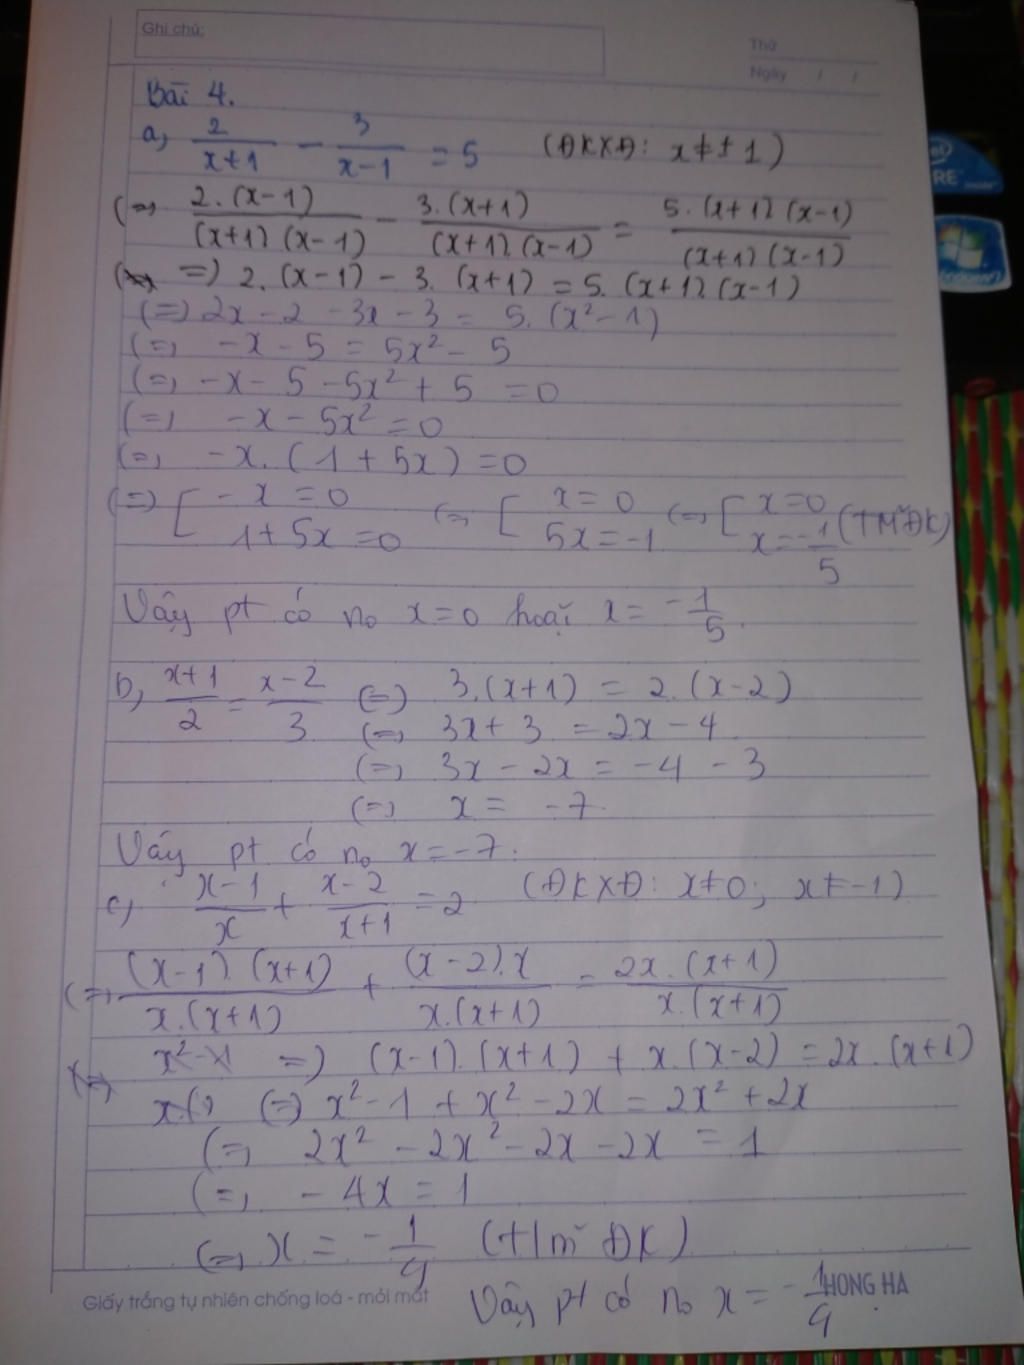 Ghi chú:
Thứ
Ngày / /
Bài 4.
a, 2/(x+1) - 3/(x-1) = 5 (ĐKXĐ: x ≠ ± 1)
(=) 2.(x-1)/(x+1).(x-1) - 3.(x+1)/(x+1).(x-1) = 5.(x+1).(x-1)/(x+1).(x-1)
=) 2.(x-1) - 3.(x+1) = 5.(x+1).(x-1)
(=) 2x - 2 - 3x - 3 = 5.(x² - 1)
(=) -x - 5 = 5x² - 5
(=) -x - 5 - 5x² + 5 = 0
(=) -x - 5x² = 0
(=) -x.(1 + 5x) = 0
(=) [ -x = 0 (=) [ x = 0 (=) [ x = 0
1 + 5x = 0 5x = -1 x = -1/5 (TMĐK)
Vậy pt có no x = 0 hoặc x = -1/5.
b, (x+1)/2 = (x-2)/3 (=) 3.(x+1) = 2.(x-2)
(=) 3x + 3 = 2x - 4
(=) 3x - 2x = -4 - 3
(=) x = -7.
Vậy pt có no x = -7.
c, (x-1)/x + (x-2)/(x+1) = 2 (ĐKXĐ: x ≠ 0; x ≠ -1)
(=) (x-1).(x+1)/x.(x+1) + (x-2).x/x.(x+1) = 2x.(x+1)/x.(x+1)
=) (x-1).(x+1) + x.(x-2) = 2x.(x+1)
(=) x² - 1 + x² - 2x = 2x² + 2x
(=) 2x² - 2x² - 2x - 2x = 1
(=) -4x = 1
(=) x = -1/4 (t/m ĐK)
Vậy pt có no x = -1/4
Giấy trắng tự nhiên chống loá - mỏi mắt
HONG HA